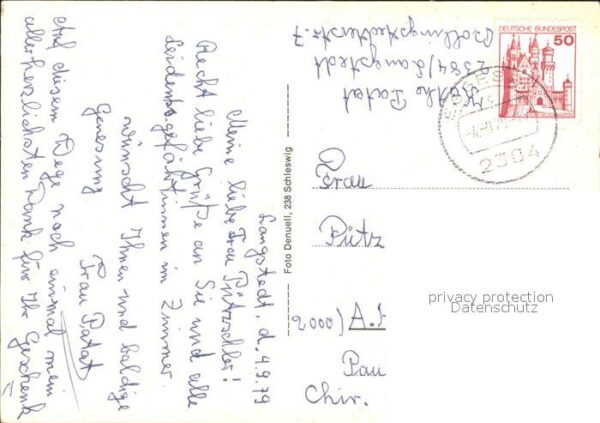 Langstedt, d. 4.9.79
Meine liebe Frau Pützschler!
Recht liebe Grüße an Sie und alle
Leidensgefährtinnen im Zimmer
wünscht Ihnen und baldige
Genesung
Frau Patat
Auf diesem Wege noch einmal mein
allerherzlichsten Dank für Ihr Geschenk
Foto Denuell, 238 Schleswig
Patat
2384 / Langstedt
Bollingstedterstr. 7
DEUTSCHE BUNDESPOST
50
2384
Frau
Pütz
2000
Pau
Chir.
privacy protection
Datenschutz